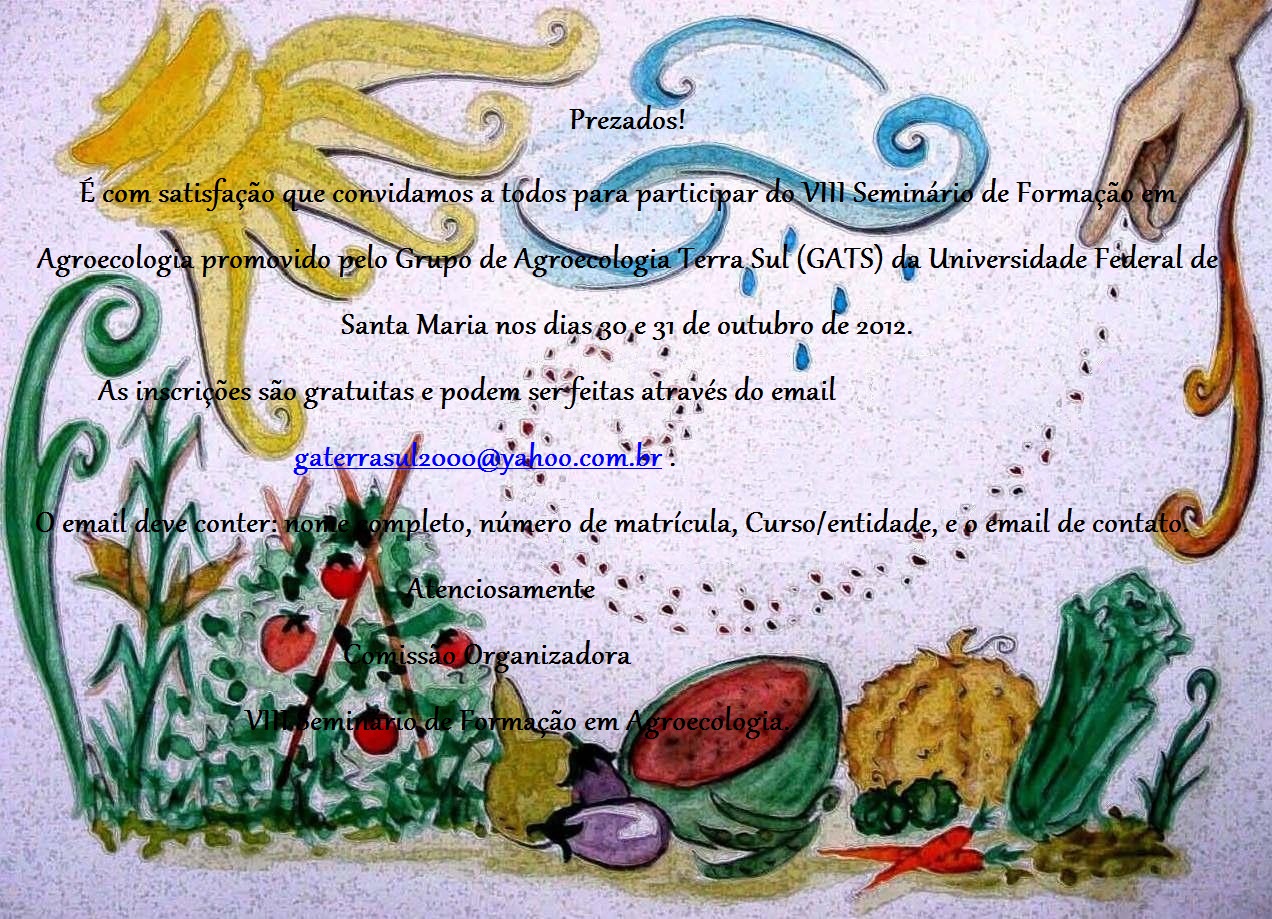 Prezados!
É com satisfação que convidamos a todos para participar do VIII Seminário de Formação em
Agroecologia promovido pelo Grupo de Agroecologia Terra Sul (GATS) da Universidade Federal de
Santa Maria nos dias 30 e 31 de outubro de 2012.
As inscrições são gratuitas e podem ser feitas através do email
gaterrasul2000@yahoo.com.br .
O email deve conter: nome completo, número de matrícula, Curso/entidade, e o email de contato.
Atenciosamente
Comissão Organizadora
VIII Seminário de Formação em Agroecologia.